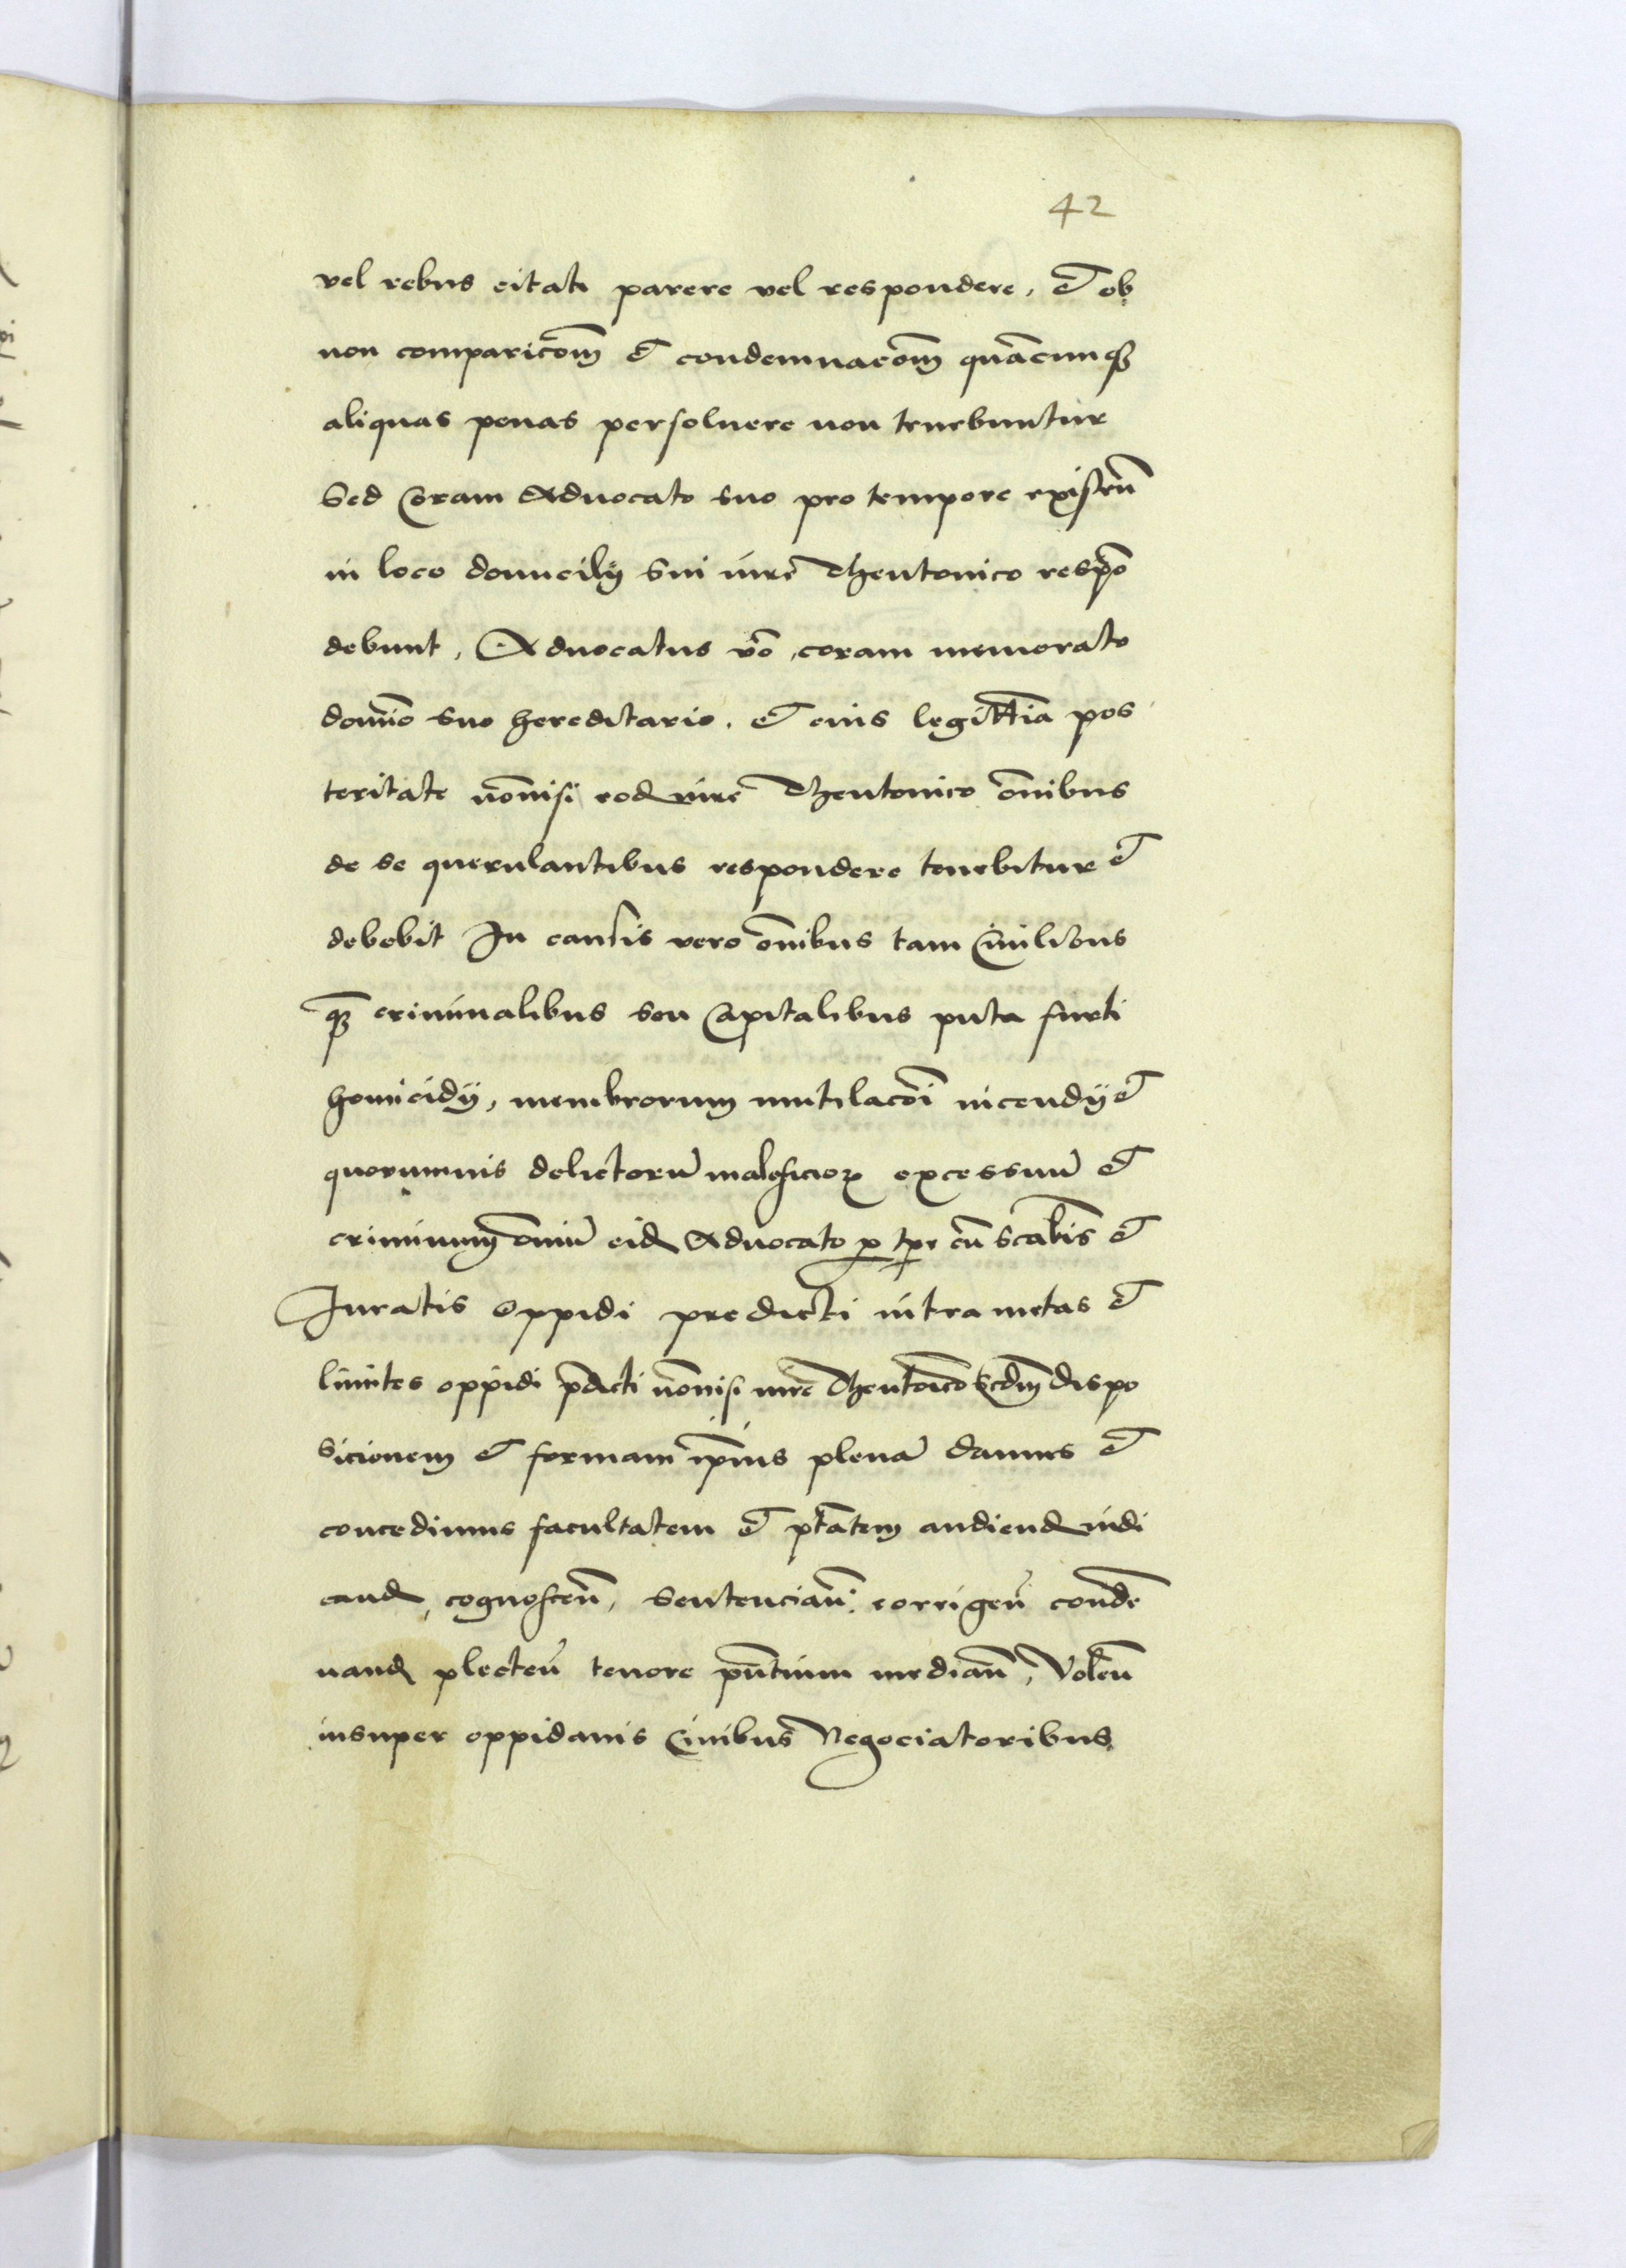 42
vel rebus citati parere vel respondere, et ob
non comparic̄om̄ et condemnac̄om̄ quācunq3
aliquas penas persoluere non tenebuntur
Sed Coram Aduocato suo pro tempore existen̄
in loco domicilÿ sui iure Theutonico respō
debunt, Aduocatus v̄o, coram memorato
domīo suo hereditario. et eius legittīa pos
teritate nōnisi eod iure Theutonico om̄ibus
de se querulantibus respondere tenebitur et
debebit In causis vero om̄ibus tam Ciuilibus
q̄3 criminalibus seu Capitalibus puta furti
homicidÿ, membrorum mutilac̄oī incendÿ et
quorumuis delictorū maleficioꝝ excessuū et
criminum om̄iū eid Aduocato p tp̄r cū Scabīs et
Iuratis oppidi predicti intra metas et
limites oppidi p̄dicti nōnisi iure Theutōico Scdm̄ dispo
sicionem et formam ip̄ius plenā damus et
concedimus facultatem et p̄tātem audiend iudi
cand, cognoscen̄, sentencian̄. corrigen̄ condē
nand plecten̄ tenore pn̄tium median̄, Volen̄
insuper oppidanis Ciuibus Negociatoribus